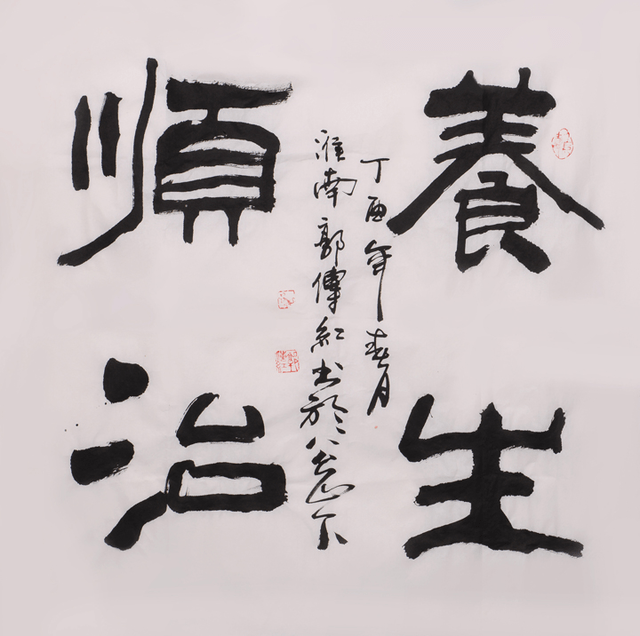 養生
順治
丁酉年春月
淮南郭傳紅书於八公山下